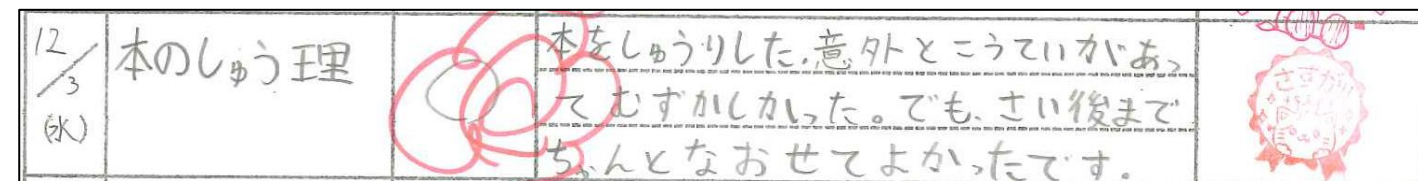 12/3
(水)
本のしゅう理
本をしゅうりした。意外とこうていがあっ
てむずかしかった。でも、さい後まで
ちゃんとなおせてよかったです。
さすが!!